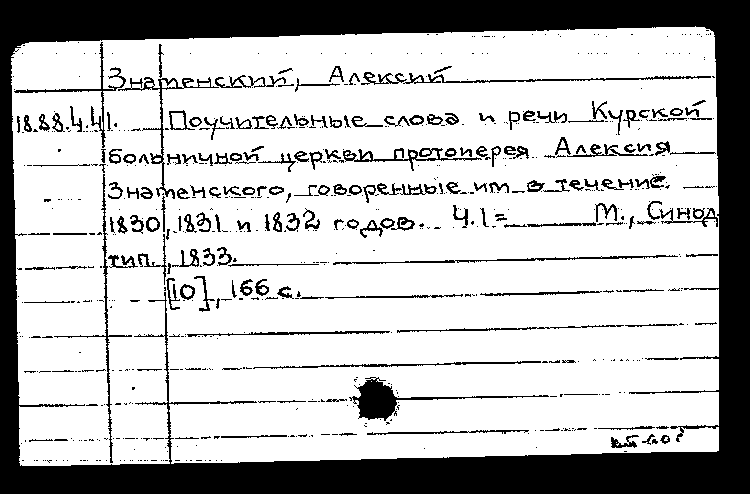 Знаменский, Алексий
18.88.4.41. Поучительные слова и речи Курской
больничной церкви протоиерея Алексия
Знаменского, говоренные им в течение
1830, 1831 и 1832 годов. Ч.1= М., Синод.
тип., 1833.
[10], 166 с.